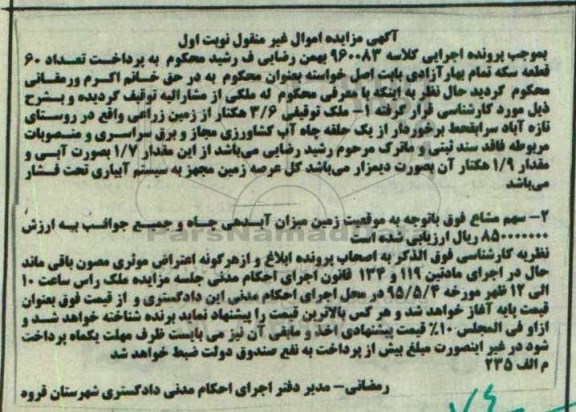 آگهی مزایده اموال غیر منقول نوبت اول
بموجب پرونده اجرایی کلاسه ۹۶۰۰۸۳ بهمن رضایی ف رشید محکوم به پرداخت تعداد ۶۰
قطعه سکه تمام بهارآزادی بابت اصل خواسته بعنوان محکوم به در حق خانم اکرم ورمقانی
محکوم گردید حال نظر به اینکه با معرفی محکوم له ملکی از مشارالیه توقیف گردیده و بشرح
ذیل مورد کارشناسی قرار گرفته ۱- ملک توقیفی ۳/۶ هکتار از زمین زراعی واقع در روستای
تازه آباد سرابقحط برخوردار از یک حلقه چاه آب کشاورزی مجاز و برق سراسری و منصوبات
مربوطه فاقد سند ثبتی و ماترک مرحوم رشید رضایی می‌باشد از این مقدار ۱/۷ بصورت آبی و
مقدار ۱/۹ هکتار آن بصورت دیمزار می‌باشد کل عرصه زمین مجهز به سیستم آبیاری تحت فشار
می‌باشد
۲- سهم مشاع فوق باتوجه به موقعیت زمین میزان آبدهی چاه و جمیع جوانب به ارزش
۸۵۰۰۰۰۰۰۰ ریال ارزیابی شده است
ParsNamadData
نظریه کارشناسی فوق الذکر به اصحاب پرونده ابلاغ و ازهرگونه اعتراض موثری مصون باقی ماند
حال در اجرای مادتین ۱۱۹ و ۱۳۴ قانون اجرای احکام مدنی جلسه مزایده ملک راس ساعت ۱۰
الی ۱۲ ظهر مورخه ۹۵/۵/۴ در محل اجرای احکام مدنی این دادگستری و از قیمت فوق بعنوان
قیمت پایه آغاز خواهد شد و هر کس بالاترین قیمت را پیشنهاد نماید برنده شناخته خواهد شد و
ازاو فی المجلس ۱۰٪ قیمت پیشنهادی اخذ و مابقی آن نیز می بایست ظرف مهلت یکماه پرداخت
شود در غیر اینصورت مبلغ پیش از پرداخت به نفع صندوق دولت ضبط خواهد شد
م الف ۲۳۵
رمضانی- مدیر دفتر اجرای احکام مدنی دادگستری شهرستان قروه